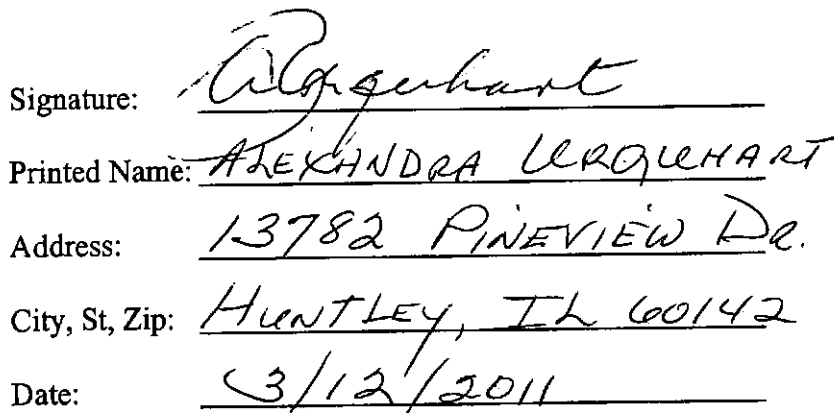 Signature: A Urquhart
Printed Name: ALEXANDRA URQUHART
Address: 13782 PINEVIEW DR.
City, St, Zip: HUNTLEY, IL 60142
Date: 3/12/2011